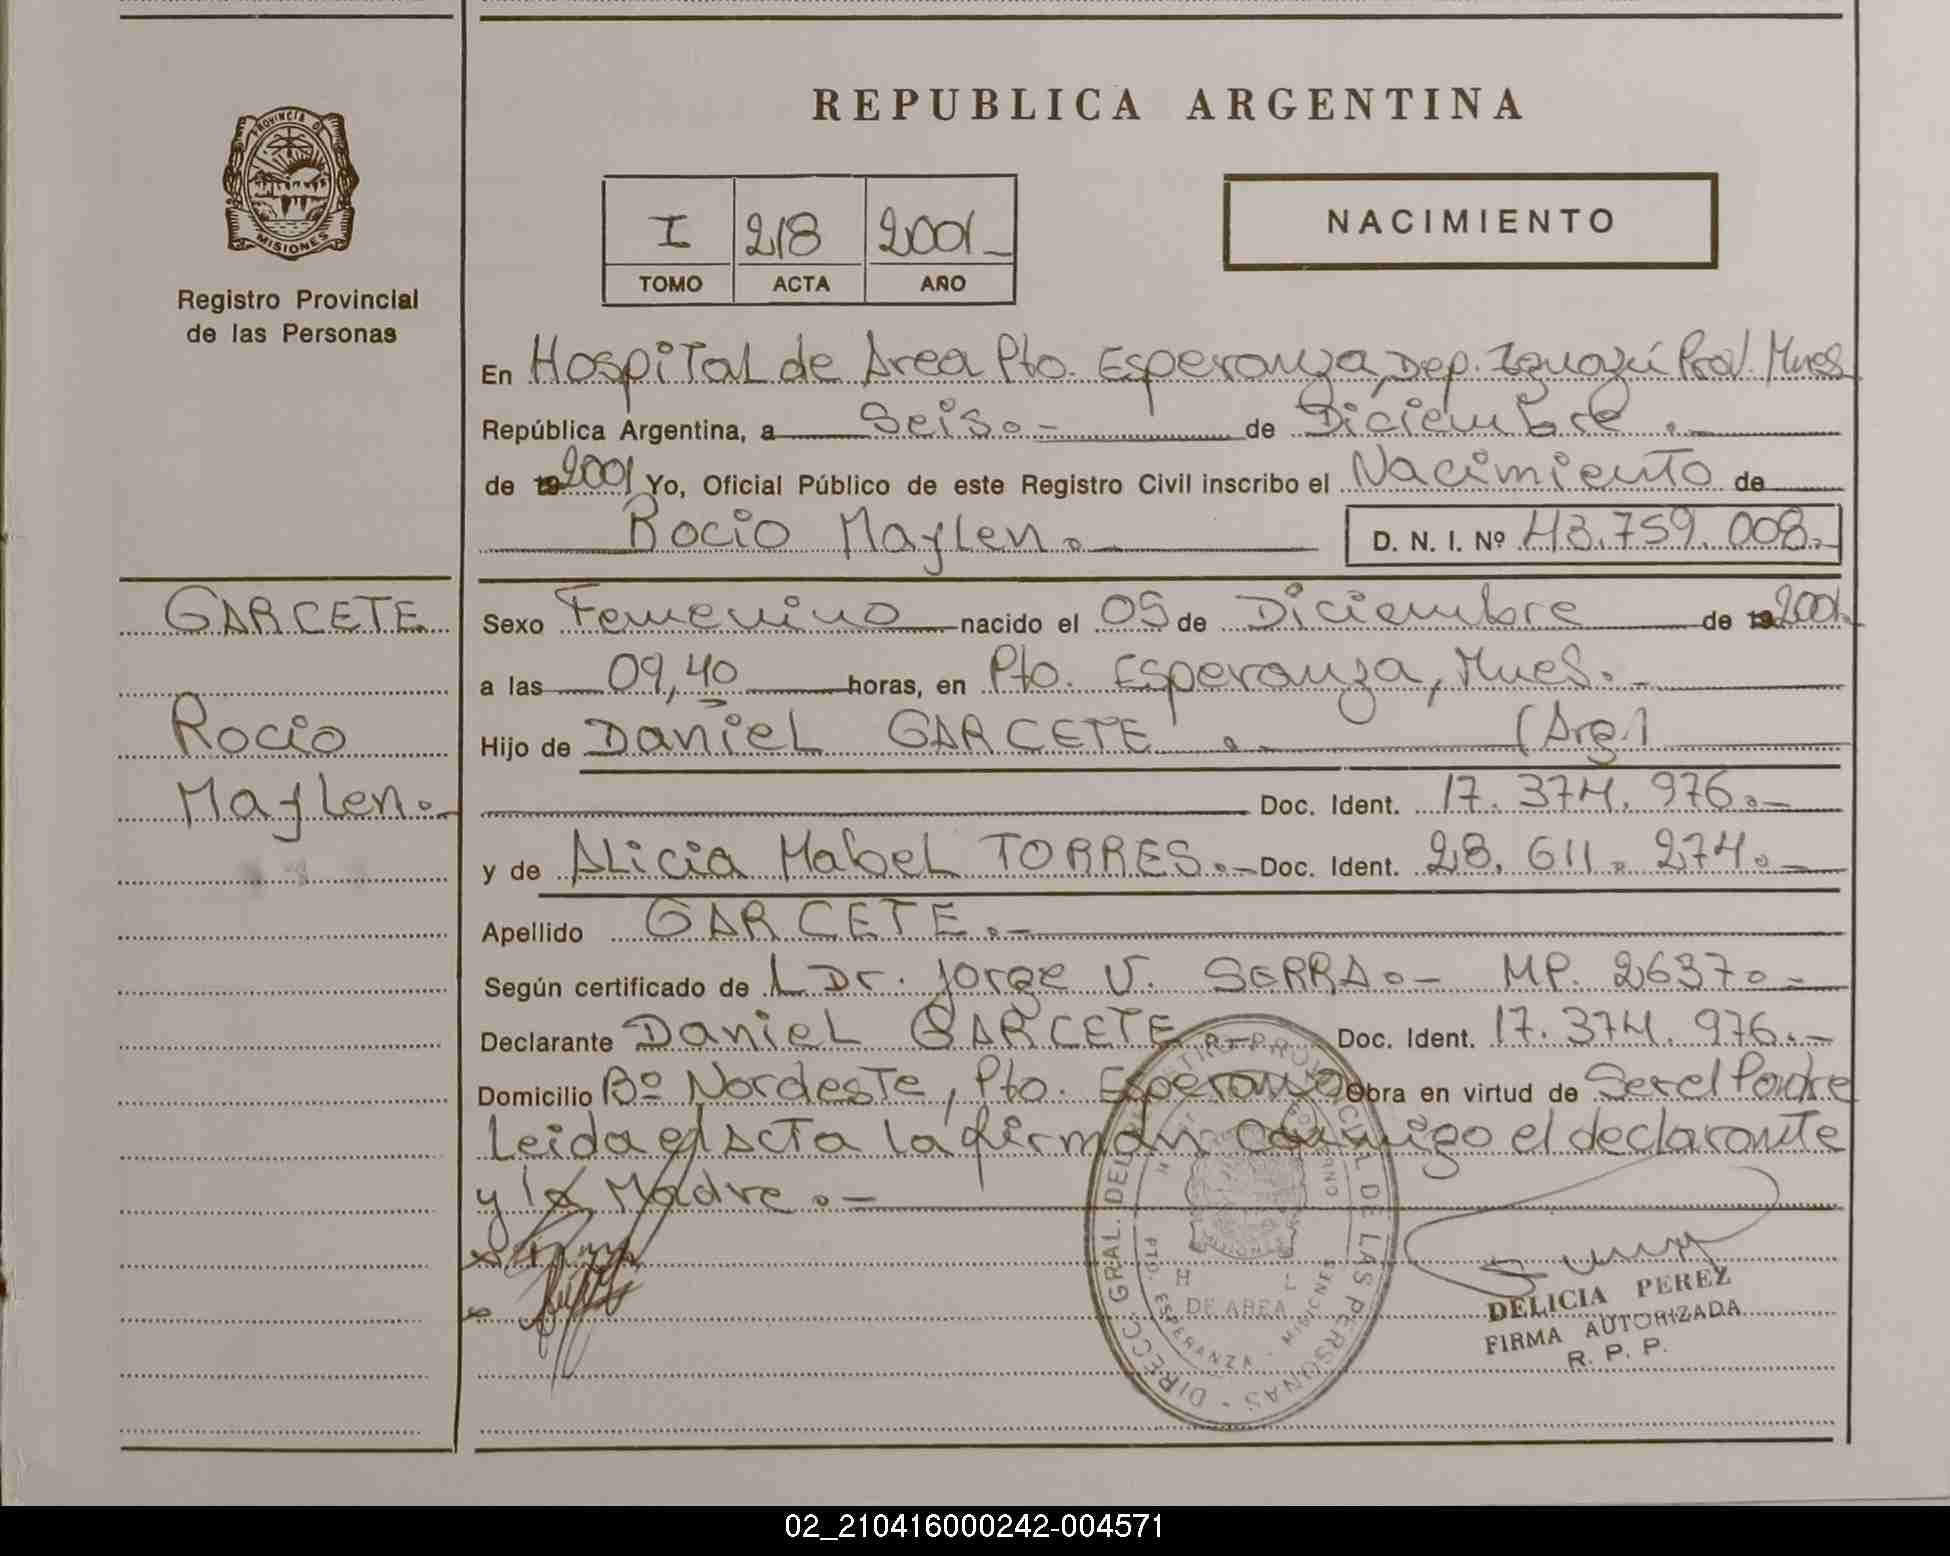 REPUBLICA ARGENTINA
PROVINCIA DE
MISIONES
Registro Provincial
de las Personas
I 218 2001.-
TOMO ACTA AÑO
NACIMIENTO
En Hospital de Area Pto. Esperanza, Dep. Iguazú Prov. Mnes
República Argentina, a Seis.- de Diciembre.-
de 19 2001 Yo, Oficial Público de este Registro Civil inscribo el Nacimiento de
Rocio Maylen.- D. N. I. Nº 43.759.008.-
GARCETE
Rocio
Maylen.-
Sexo Femenino nacido el 05 de Diciembre de 19 2001.-
a las 09,40 horas, en Pto. Esperanza, Mnes.-
Hijo de Daniel GARCETE.- (Arg)
Doc. Ident. 17.374.976.-
y de Alicia Mabel TORRES.- Doc. Ident. 28.611.274.-
Apellido GARCETE.-
Según certificado de L Dr. Jorge V. SERRA.- MP. 2637.-
Declarante Daniel GARCETE Doc. Ident. 17.374.976.-
Domicilio Bº Nordeste, Pto. Esperanza Obra en virtud de Ser el Padre
Leida el Acta la firman conmigo el declarante
y la Madre.-
DIRECC. GRAL. DEL REGISTRO PROVINCIAL DE LAS PERSONAS
DE AREA
PTO. ESPERANZA - MISIONES
DELICIA PEREZ
FIRMA AUTORIZADA
R. P. P.
02_210416000242-004571